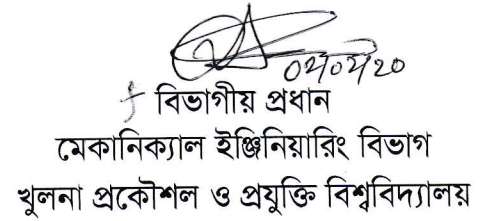 বিভাগীয় প্রধান
মেকানিক্যাল ইঞ্জিনিয়ারিং বিভাগ
খুলনা প্রকৌশল ও প্রযুক্তি বিশ্ববিদ্যালয়